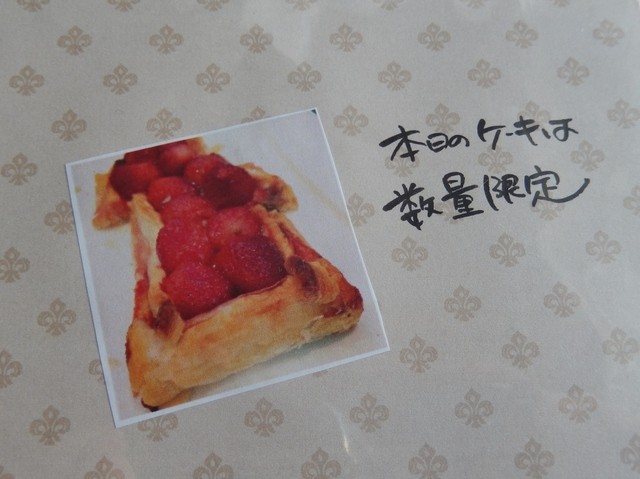 本日のケーキは
数量限定